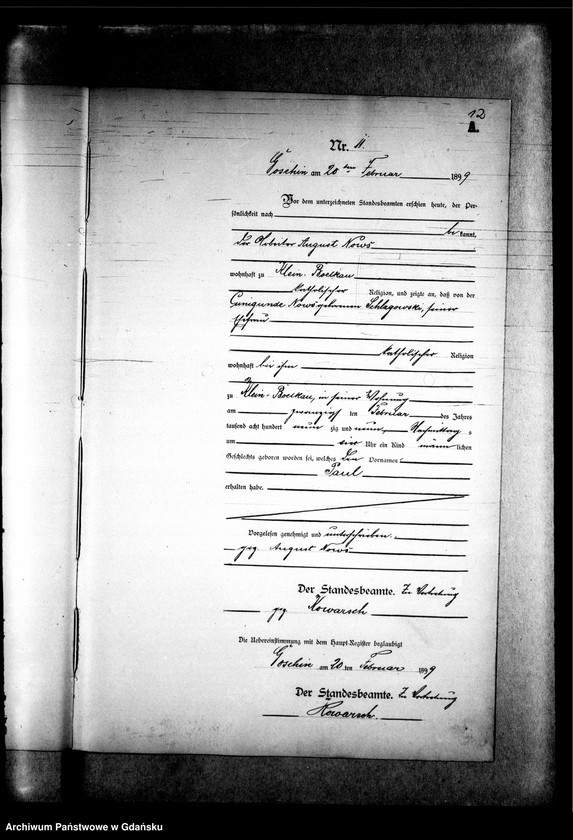 12
A.
Nr. 11.
Goschin am 20ten Februar 1899
Vor dem unterzeichneten Standesbeamten erschien heute, der Per-
sönlichkeit nach
be kannt,
der Arbeiter August Nows
wohnhaft zu Klein-Boelkau
katholischer Religion, und zeigte an, daß von der
Cunigunde Nows geborenen Schlagowski, seiner
Ehefrau
katholischer Religion
wohnhaft bei ihm
zu Klein-Boelkau, in seiner Wohnung
am zwanzigsten Februar des Jahres
tausend acht hundert neunzig und neun Nachmittag s
um vier Uhr ein Kind männlichen
Geschlechts geboren worden sei, welches den Vornamen
Paul
erhalten habe.
Vorgelesen genehmigt und unterschrieben.
gez. August Nows
Der Standesbeamte. In Vertretung
gez. Kowarsch
Die Uebereinstimmung mit dem Haupt-Register beglaubigt
Goschin am 20 ten Februar 1899
Der Standesbeamte. In Vertretung
Kowarsch.
Archiwum Państwowe w Gdańsku